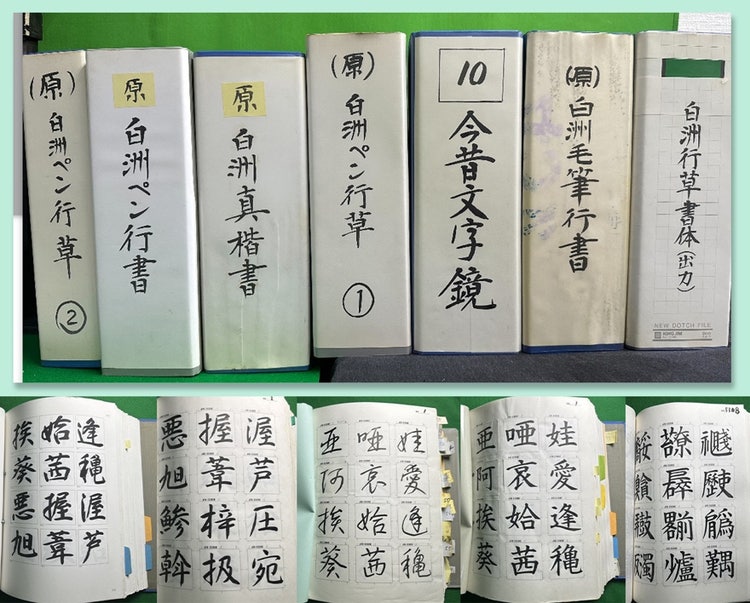 (原)白洲ペン行草
②
原
白洲ペン行書
原
白洲真楷書
(原)白洲ペン行草
①
10
今昔文字鏡
(原)白洲毛筆行書
白洲行草書体(出力)
NEW DOTCH FILE
挨 姶 逢
葵 茜 穐
悪 握 渥
旭 葦 芦
悪 握 渥
旭 葦 芦
鯵 梓 圧
斡 扱 宛
亜 唖 娃
阿 哀 愛
挨 姶 逢
葵 茜 穐
亜 唖 娃
阿 哀 愛
挨 姶 逢
葵 茜 穐